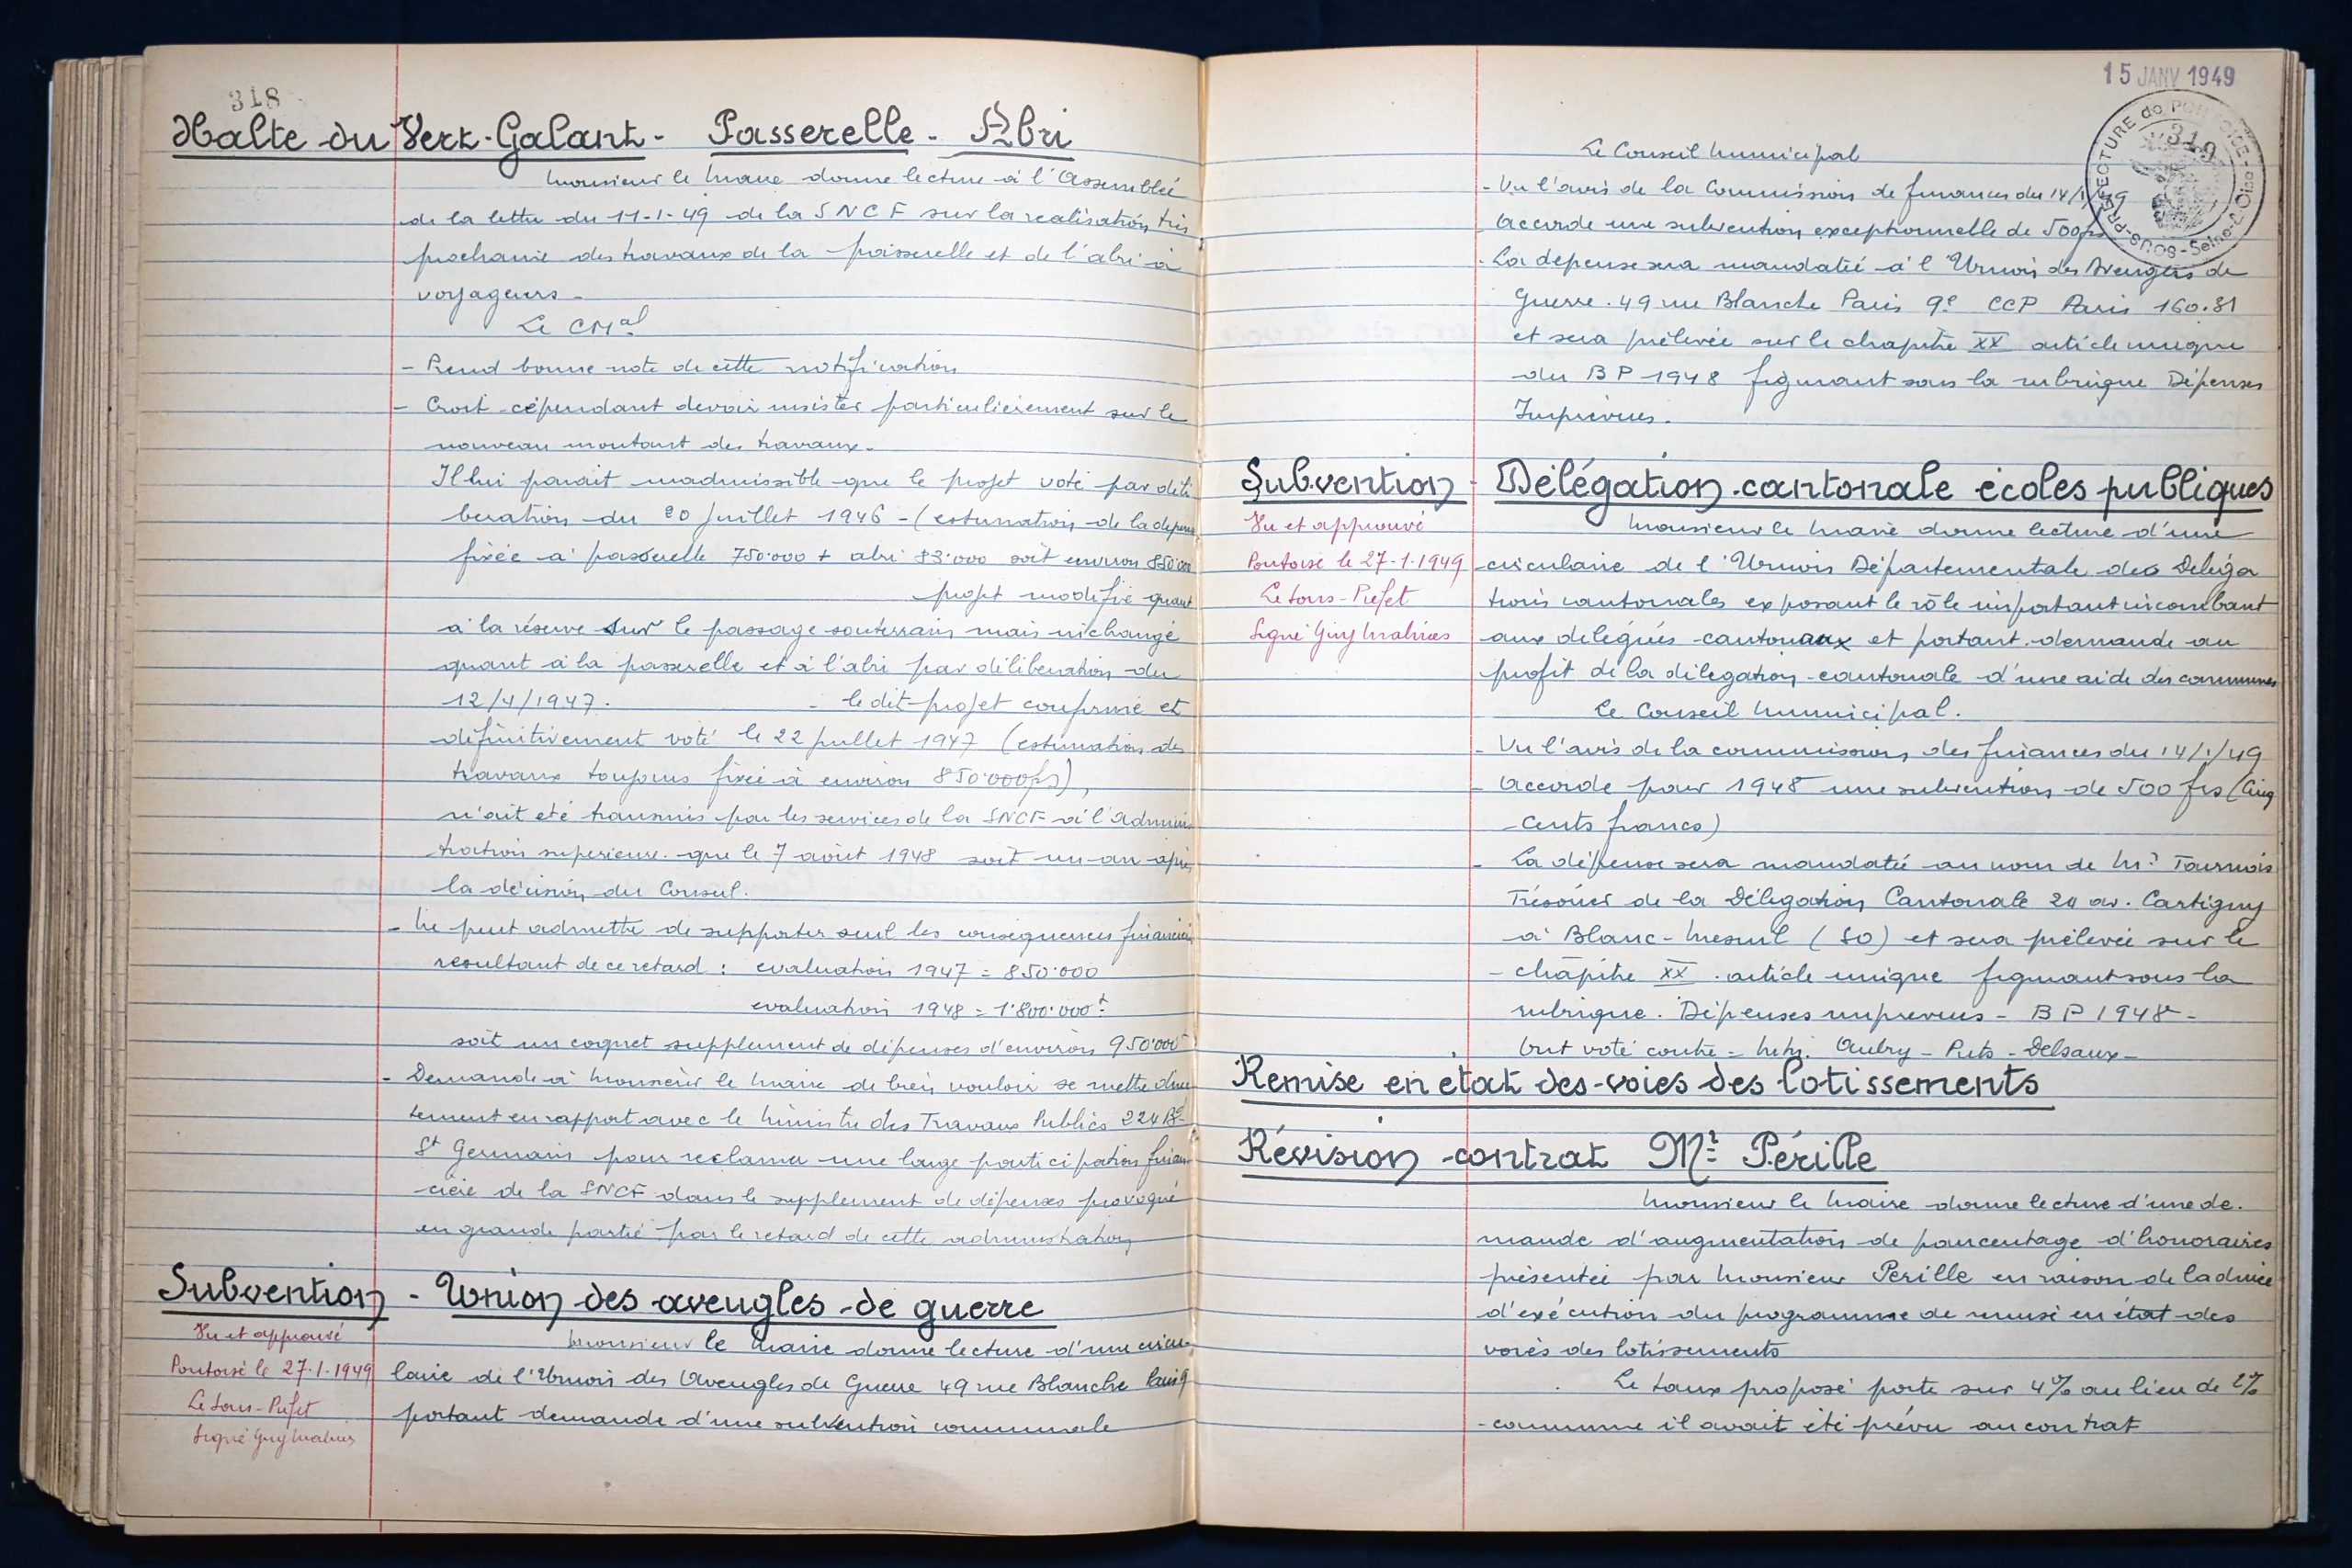 318
Halte du Vert-Galant - Passerelle - Abri
Monsieur le Maire donne lecture à l'Assemblée
de la lettre du 11-1-49 de la SNCF sur la réalisation très
prochaine des travaux de la passerelle et de l'abri à
voyageurs -
Le CMal
- Prend bonne note de cette notification
- Croit cependant devoir insister particulièrement sur le
nouveau montant des travaux.
Il lui parait inadmissible que le projet voté par déli
bération du 20 Juillet 1946 - (estimation de la dépense
fixée à passerelle 750.000 + abri 83.000 soit environ 850.000
projet modifié quant
à la réserve sur le passage souterrain mais inchangé
quant à la passerelle et à l'abri par délibération du
12/4/1947. - le dit projet confirmé et
définitivement voté le 22 juillet 1947 (estimation des
travaux toujours fixée à environ 850.000frs),
n'ait été transmis par les services de la SNCF à l'adminis
tration supérieure que le 7 août 1948 soit un an après
la décision du Conseil.
- Ne peut admettre de supporter seul les conséquences financières
résultant de ce retard : évaluation 1947 = 850.000
évaluation 1948 = 1.800.000f
soit un coquet supplément de dépenses d'environ 950.000
- Demande à Monsieur le Maire de bien vouloir se mettre direc
tement en rapport avec le Ministre des Travaux Publics 224 Bd
St Germain pour réclamer une large participation finan
cière de la SNCF dans le supplément de dépenses provoqué
en grande partie par le retard de cette administration
Subvention - Union des aveugles de guerre
Vu et approuvé
Pontoise le 27.1.1949
Le Sous-Préfet
Signé Guy
Monsieur le Maire donne lecture d'une circu
laire de l'Union des Aveugles de Guerre 49 rue Blanche Paris 9
portant demande d'une subvention communale
15 JANV 1949
SOUS-PRÉFECTURE de PONTOISE - Seine-&-Oise
319
Le Conseil Municipal
- Vu l'avis de la Commission de finances du 14/1/49
- accorde une subvention exceptionnelle de 500frs
- La dépense sera mandatée à l'Union des Aveugles de
Guerre. 49 rue Blanche Paris 9e CCP Paris 160.31
et sera prélevée sur le chapitre XX article unique
du BP 1948 figurant sous la rubrique Dépenses
Imprévues.
Subvention - Délégation cantonale écoles publiques
Vu et approuvé
Pontoise le 27-1-1949
Le Sous-Préfet
Signé Guy
Monsieur le Maire donne lecture d'une
circulaire de l'Union Départementale des Déléga
tions cantonales exposant le rôle important incombant
aux délégués cantonaux et portant demande au
profit de la délégation cantonale d'une aide des communes
Le Conseil Municipal.
- Vu l'avis de la commission des finances du 14/1/49
- accorde pour 1948 une subvention de 500 frs (Cinq
Cents francs)
- La dépense sera mandatée au nom de Mr Tournois
Trésorier de la Délégation Cantonale 24 av. Cartigny
à Blanc-Mesnil (SO) et sera prélevée sur le
- chapitre XX article unique figurant sous la
rubrique. Dépenses imprévues - BP 1948 -
Ont voté contre = MM. Aubry - Puts - Delsaux -
Remise en état des voies des lotissements
Révision contrat Mr Pérille
Monsieur le Maire donne lecture d'une de-
mande d'augmentation de pourcentage d'honoraires
présentée par Monsieur Perille en raison de la durée
d'exécution du programme de remise en état des
voies des lotissements
Le taux proposé porte sur 4% au lieu de 2%
- comme il avait été prévu au contrat